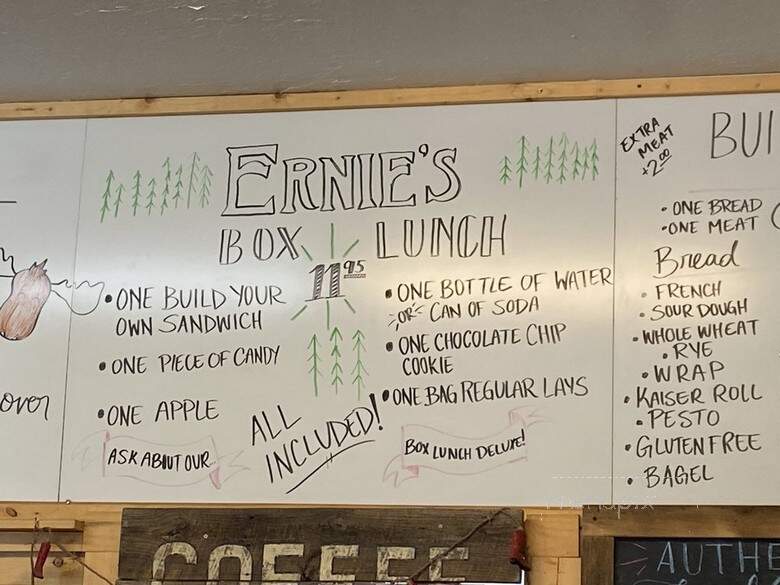 over
ERNIE'S
BOX LUNCH
11.95
• ONE BUILD YOUR
OWN SANDWICH
• ONE PIECE OF CANDY
• ONE APPLE
ASK ABOUT OUR
ALL
INCLUDED!
• ONE BOTTLE OF WATER
OR CAN OF SODA
• ONE CHOCOLATE CHIP
COOKIE
• ONE BAG REGULAR LAYS
BOX LUNCH DELUXE!
EXTRA
MEAT
+2.00
BUI
• ONE BREAD
• ONE MEAT
Bread
• FRENCH
• SOUR DOUGH
• WHOLE WHEAT
• RYE
• WRAP
• KAISER ROLL
• PESTO
• GLUTEN FREE
• BAGEL
COFFEE
AUTHE